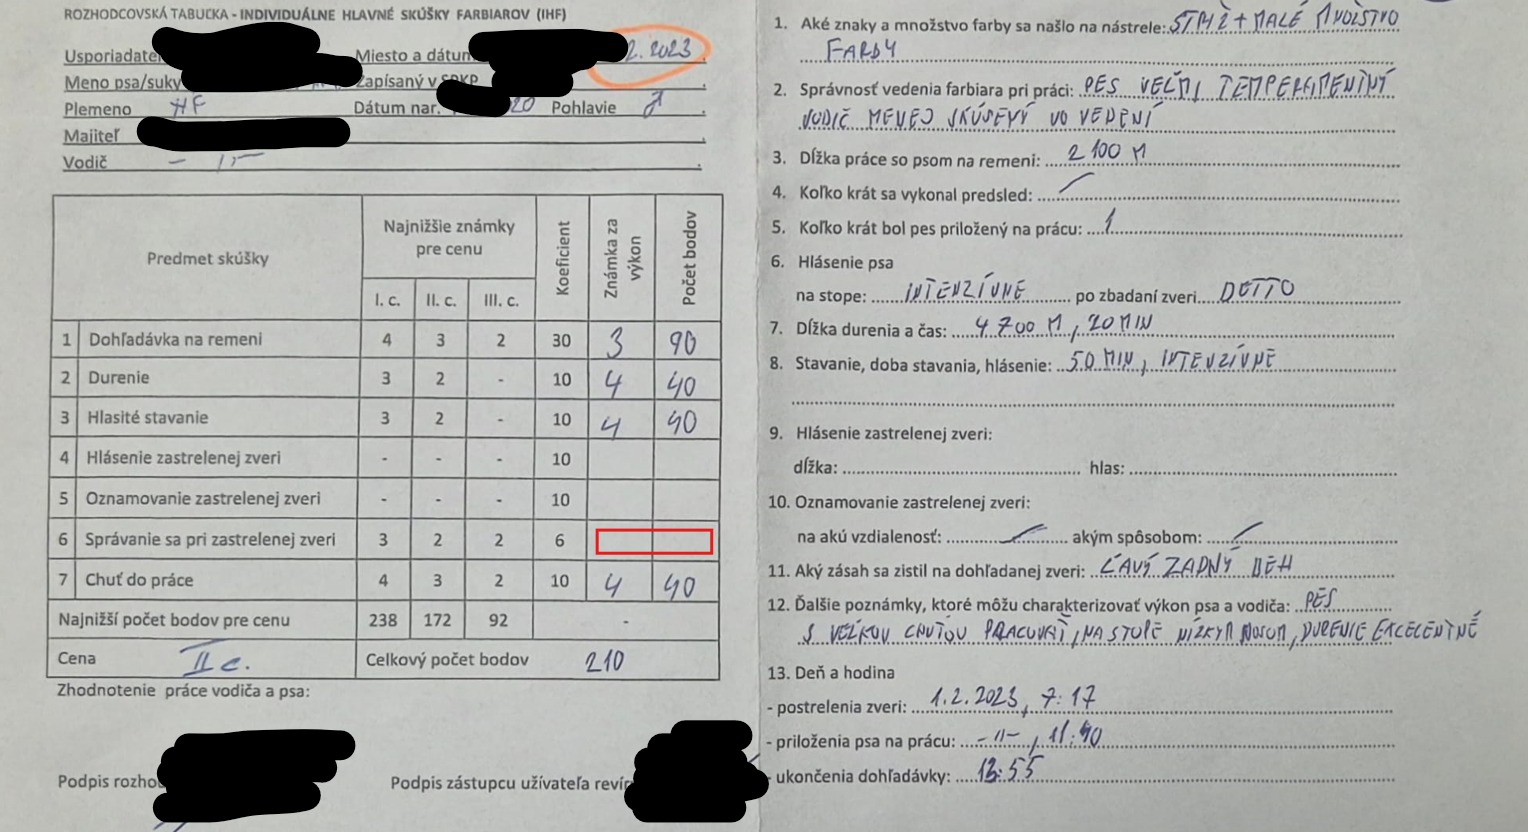 ROZHODCOVSKÁ TABUĽKA - INDIVIDUÁLNE HLAVNÉ SKÚŠKY FARBIAROV (IHF)
Usporiadateľ Miesto a dátum 2. 2023
Meno psa/suky Zapísaný v SPKP
Plemeno HF Dátum nar. 20 Pohlavie ♂
Majiteľ
Vodič - 11 -
Predmet skúšky Najnižšie známky pre cenu Koeficient Známka za výkon Počet bodov
I. c. II. c. III. c.
1 Dohľadávka na remeni 4 3 2 30 3 90
2 Durenie 3 2 - 10 4 40
3 Hlasité stavanie 3 2 - 10 4 40
4 Hlásenie zastrelenej zveri - - - 10
5 Oznamovanie zastrelenej zveri - - - 10
6 Správanie sa pri zastrelenej zveri 3 2 2 6
7 Chuť do práce 4 3 2 10 4 40
Najnižší počet bodov pre cenu 238 172 92 -
Cena II c. Celkový počet bodov 210
Zhodnotenie práce vodiča a psa:
Podpis rozho Podpis zástupcu užívateľa revír
1. Aké znaky a množstvo farby sa našlo na nástrele: STRIŽ + MALÉ MNOŽSTVO
FARBY
2. Správnosť vedenia farbiara pri práci: PES VEĽMI TEMPERAMENTNÝ
VODIČ MENEJ SKÚSENÝ VO VEDENÍ
3. Dĺžka práce so psom na remeni: 2 100 M
4. Koľko krát sa vykonal predsled:
5. Koľko krát bol pes priložený na prácu: 1
6. Hlásenie psa
na stope: INTENZÍVNE po zbadaní zveri DETTO
7. Dĺžka durenia a čas: 4 700 M, 20 MIN
8. Stavanie, doba stavania, hlásenie: 50 MIN, INTENZÍVNE
9. Hlásenie zastrelenej zveri:
dĺžka: hlas:
10. Oznamovanie zastrelenej zveri:
na akú vzdialenosť: akým spôsobom:
11. Aký zásah sa zistil na dohľadanej zveri: ĽAVÝ ZADNÝ BEH
12. Ďalšie poznámky, ktoré môžu charakterizovať výkon psa a vodiča: PES
S VEĽKOU CHUŤOU PRACOVAŤ, NA STOPE NÍZKYM NOSOM, DURENIE EXCELENTNÉ
13. Deň a hodina
- postrelenia zveri: 1.2.2023, 7:17
- priloženia psa na prácu: -11-, 11:40
- ukončenia dohľadávky: 13:55